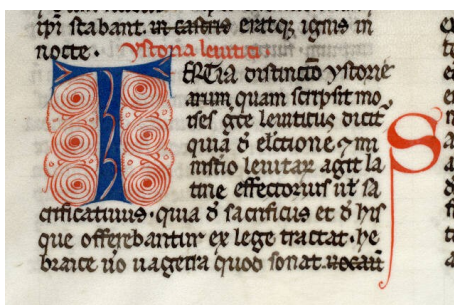 ip̄i stabant. in castris eratqꝫ ignis in
nocte. ystoria leuitici
TERTIA distinctio ystorie
arum quam scripsit mo
ises grece leuiticus dicit᷑
quia de electione ⁊ mi
nistio leuitaꝝ agit la
tine effectoriuꝫ ul̄ sa
crificatiuus. quia de sacrificiis et de his
que offerebantur ex lege tractat. he
braice uͦo uagetra quod sonat uocauit